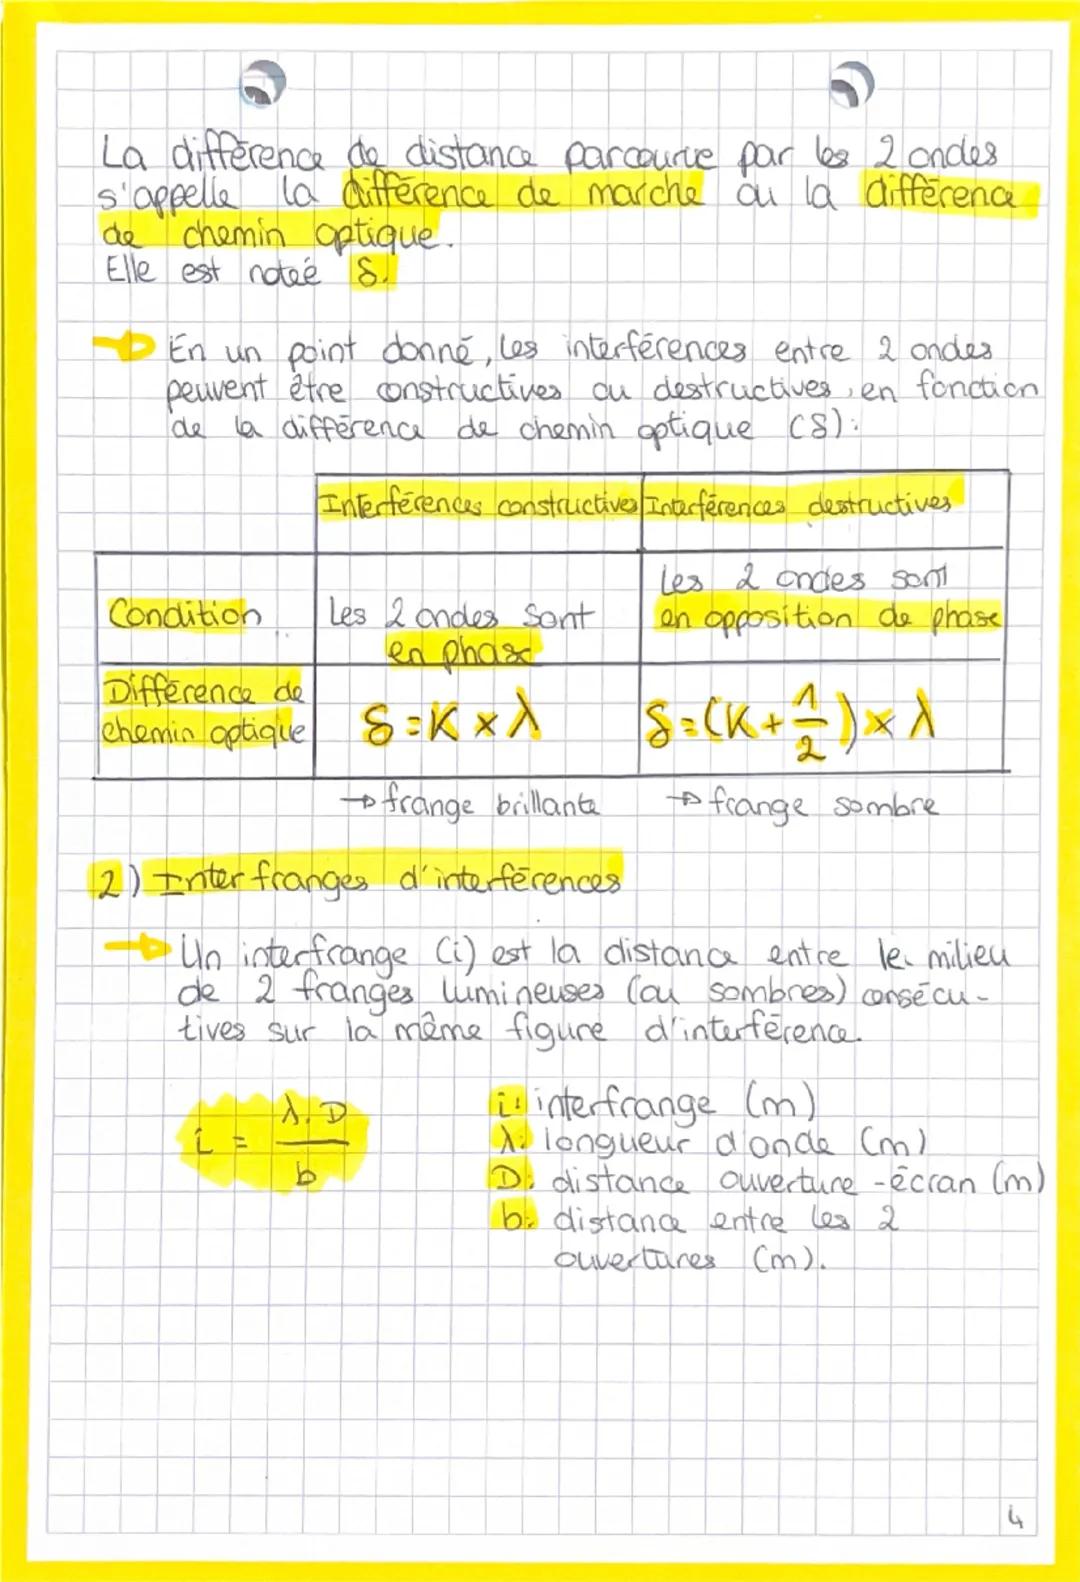 La différence de distance parcourue par les 2 ondes
s'appelle la différence de marche ou la différence
de chemin optique.
Elle est noteé δ.
→ En un point donné, les interférences entre 2 ondes
peuvent être constructives ou destructives, en fonction
de la différence de chemin optique (δ):
Interférences constructives Interférences destructives
Condition
Les 2 ondes sont
en phase
Les 2 ondes sont
en opposition de phase
Différence de
chemin optique
δ = K × λ
δ = (K + 1/2) × λ
→ frange brillante
→ frange sombre
2) Interfranges d'interférences
→ Un interfrange (i) est la distance entre le milieu
de 2 franges lumineuses (ou sombres) consécu-
tives sur la même figure d'interférence.
i = λ.D / b
i: interfrange (m)
λ: longueur d'onde (m)
D: distance ouverture-écran (m)
b: distance entre les 2
ouvertures (m).
4